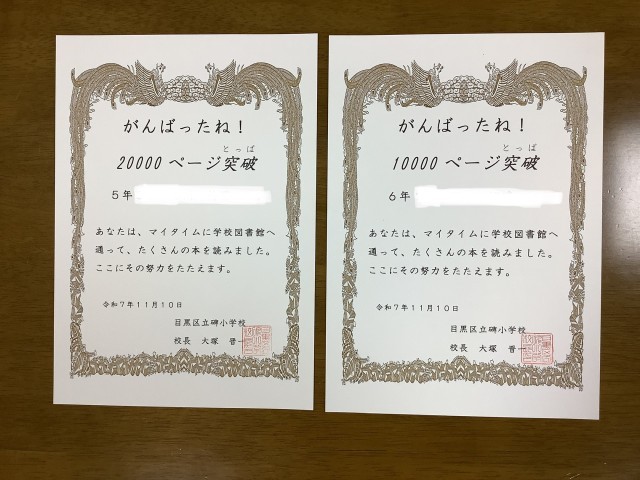 がんばったね！
とっぱ
20000 ページ突破
5年
あなたは、マイタイムに学校図書館へ
通って、たくさんの本を読みました。
ここにその努力をたたえます。
令和7年11月10日
目黒区立碑小学校
校長 大塚 晋一
がんばったね！
とっぱ
10000 ページ突破
6年
あなたは、マイタイムに学校図書館へ
通って、たくさんの本を読みました。
ここにその努力をたたえます。
令和7年11月10日
目黒区立碑小学校
校長 大塚 晋一